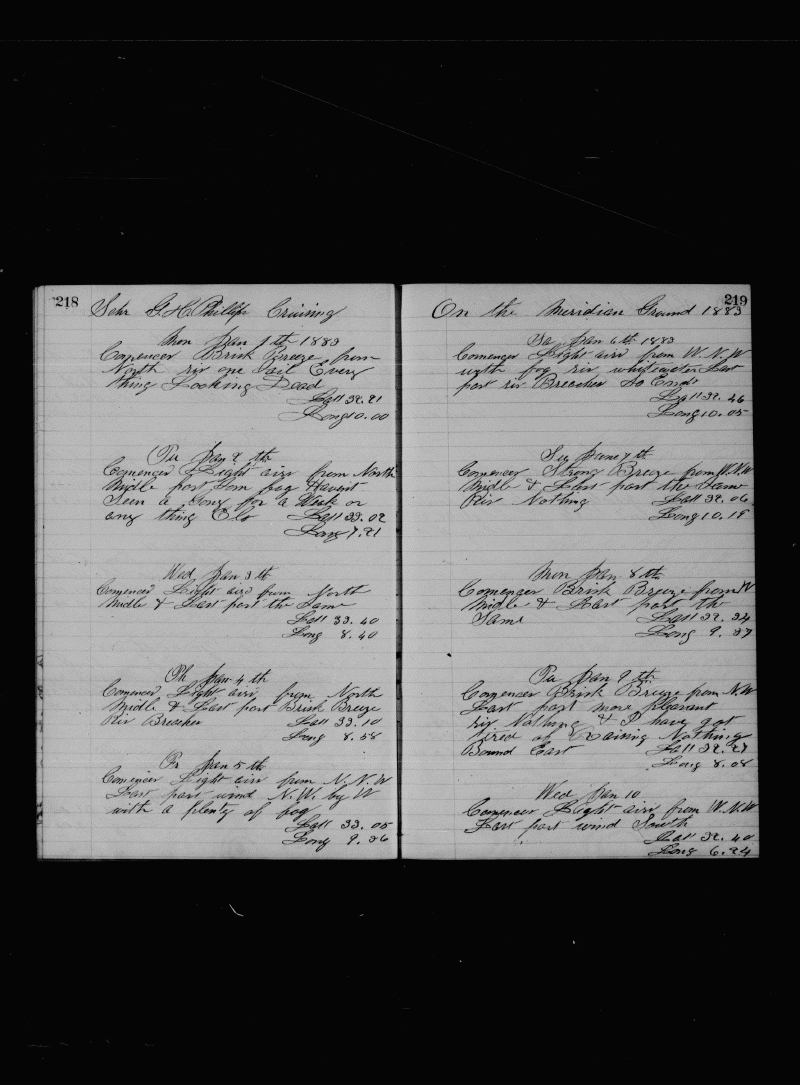 218
Schr G. H. Phillips Cruising
Mon Jan 1 th 1883
Comencer Brisk Breeze from
North riz one Sail Every
thing Looking Dead
Latt 32.21
Long 10.00
Tu Jan 2 th
Comencer Light airs from North
Midle part Som fog Havent
Seen a Song for a Week or
any thing Els Latt 33.02
Long 7.21
Wed Jan 3 th
Comencer Light airs from North
Midle & Last part the Same
Latt 33.40
Long 8.40
Th Jan 4 th
Comencer Light airs from North
Midle & Last part Brisk Breeze
Riz Breacher Latt 33.10
Long 8.58
Fr Jan 5 th
Comencer Light air from N.N.W
Last part wind N.W. by W
with a plenty of fog
Latt 33.05
Long 9.36
219
On the Meridian Ground 1883
Sa Jan 6 th 1883
Comencer Light airs from W.N.W
wyth fog riz whitewater Last
part riz Breacher So Ends
Latt 32.46
Long 10.05
Su June 7 th
Comencer Strong Breeze from W.N.W
Midle & Last part the Same
Riz Nothing Latt 32.06
Long 10.18
Mon Jan 8 th
Comencer Brisk Breeze from W
Midle & Last part the
Same Latt 32.34
Long 9.37
Tu Jan 9 th
Comencer Brisk Breeze from N.W
Last part more pleasant
riz Nothing & I have got
tired of Raising Nothing
Bound East Latt 32.27
Long 8.08
Wed Jan 10
Comencer Light airs from W.N.W
Last part wind South
Latt 32.40
Long 6.24